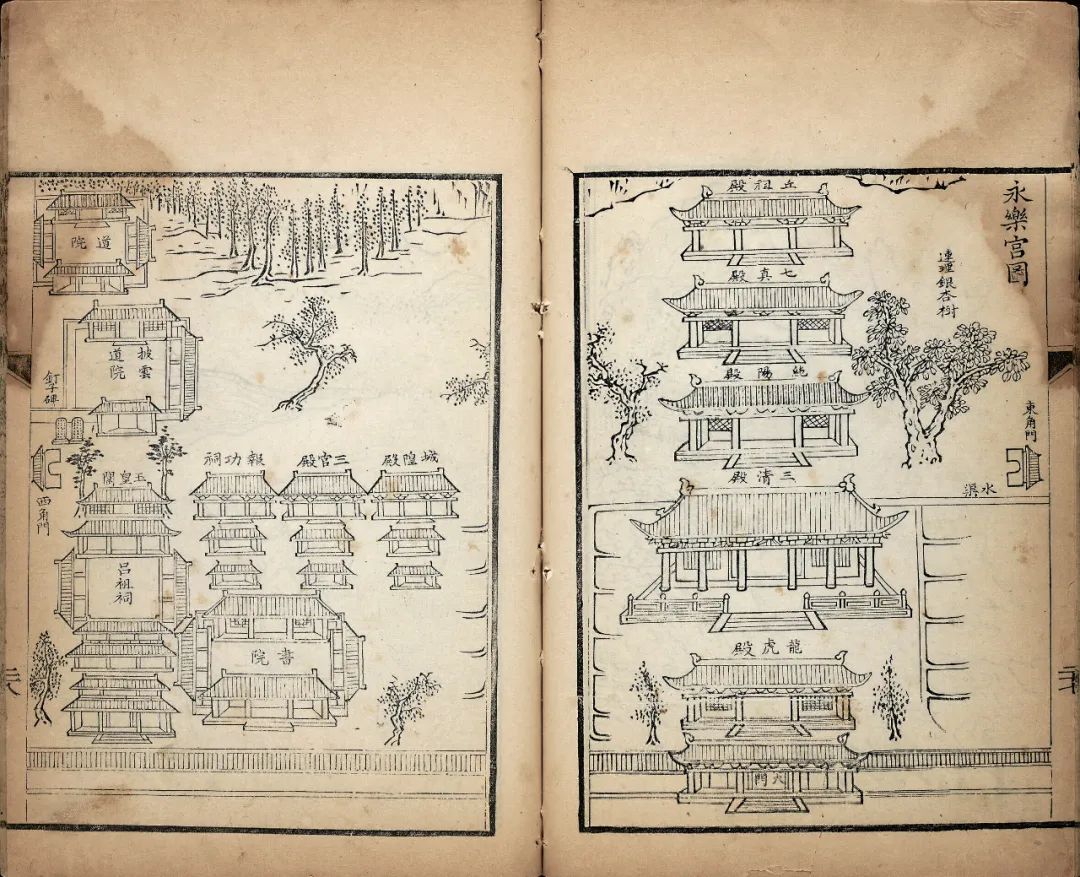 永樂宫圖
連理銀杏樹
東角門
水渠
丘祖殿
七真殿
純陽殿
三清殿
龍虎殿
大門
城隍殿
三官殿
報功祠
書院
道院
披雲
道院
釘子碑
玉皇閣
西角門
吕祖祠